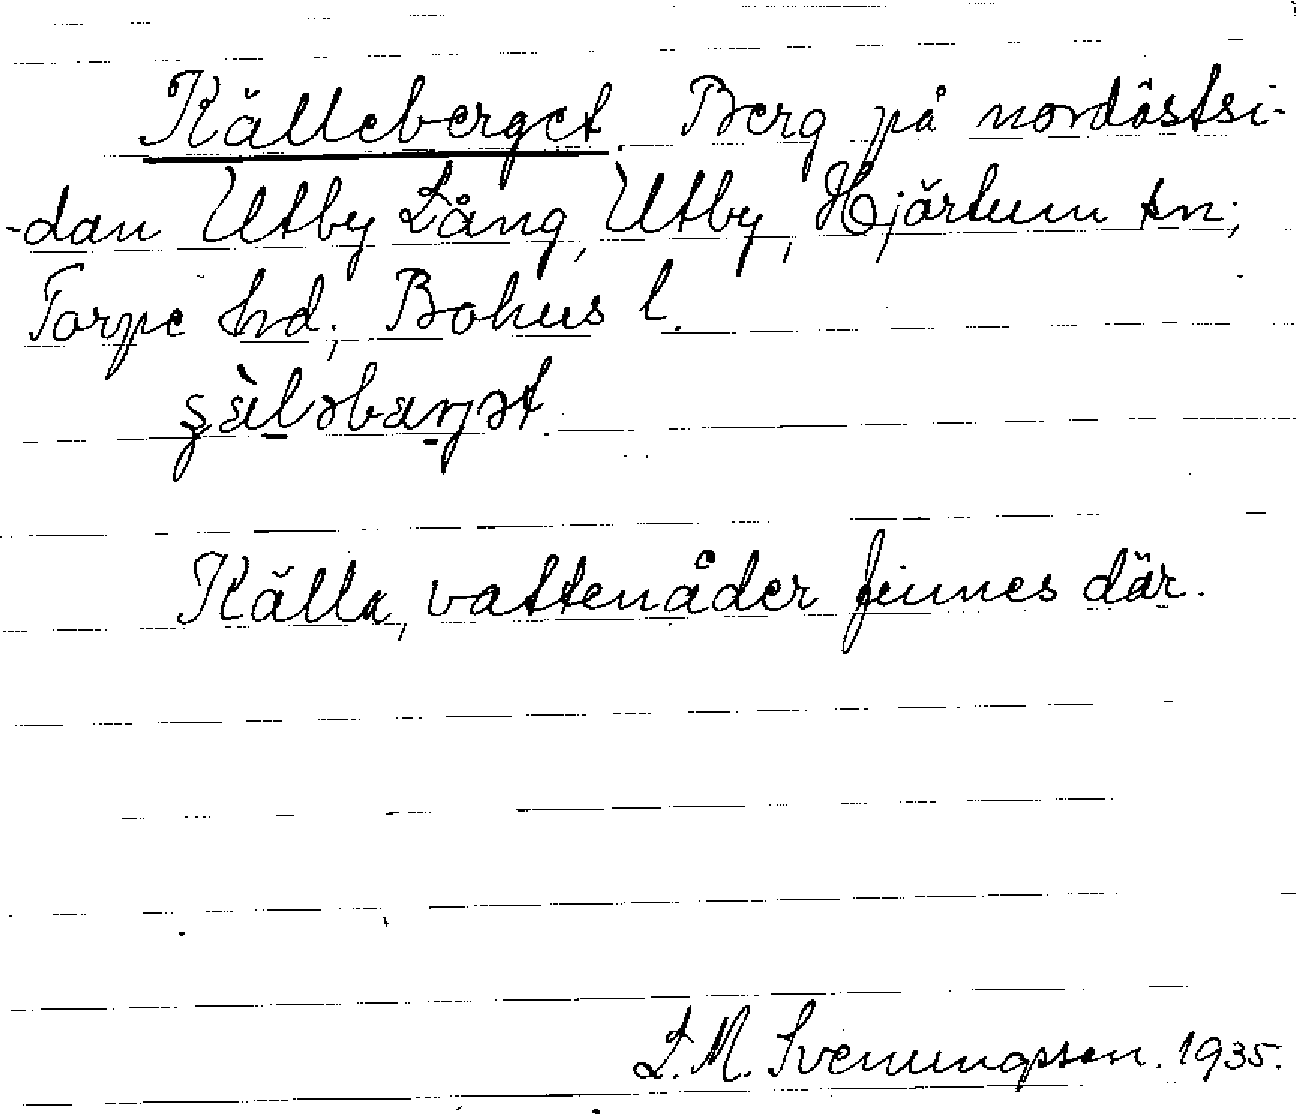 Källeberget. Berg på nordöstsi-
-dan Utby Lång, Utby, Hjärtum sn;
Torpe hd; Bohus l.
Källa, vattenåder finnes där.
L. M. Svenungsson. 1935.